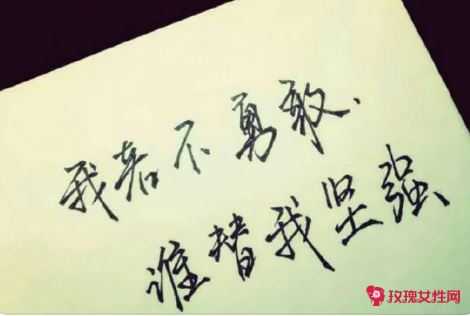 我若不勇敢.
谁替我坚强
玫瑰女性网